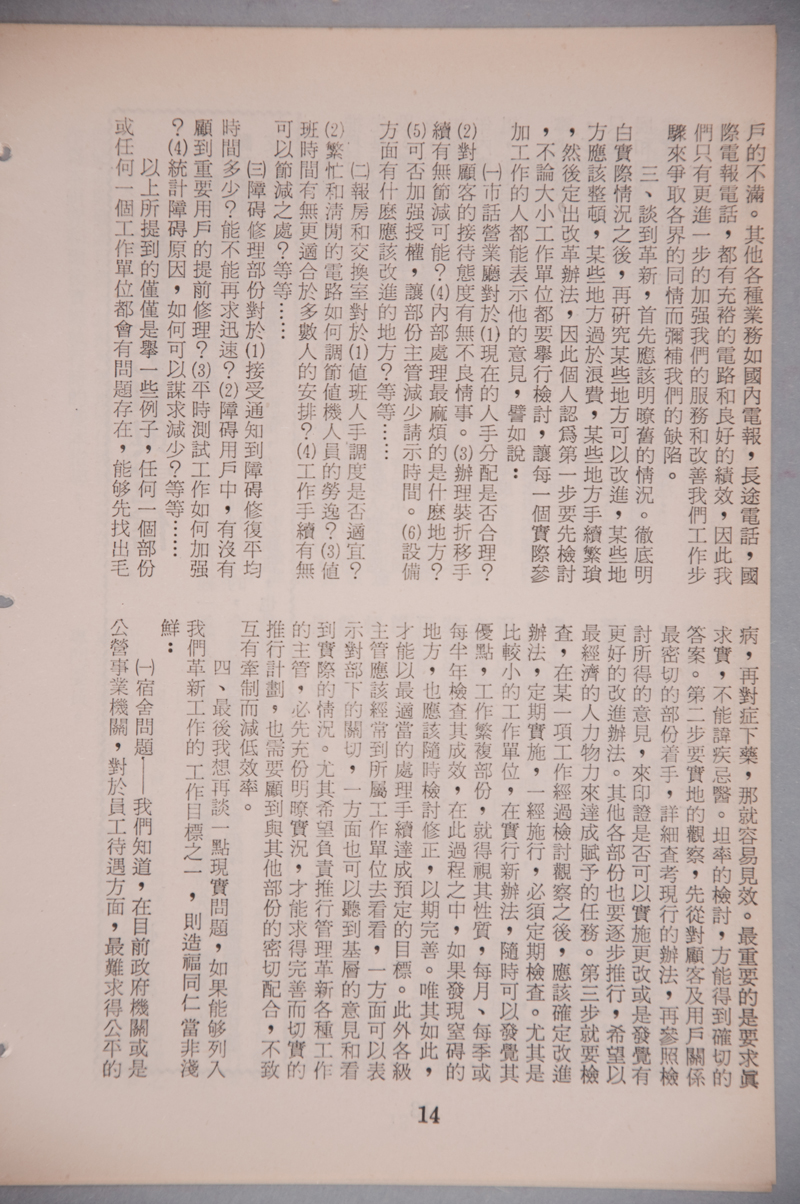 戶的不滿。其他各種業務如國內電報，長途電話，國
際電報電話，都有充裕的電路和良好的績效，因此我
們只有更進一步的加强我們的服務和改善我們工作步
驟來爭取各界的同情而彌補我們的缺陷。
三、談到革新，首先應該明瞭舊的情況。徹底明
白實際情況之後，再研究某些地方可以改進，某些地
方應該整頓，某些地方過於浪費，某些地方手續繁瑣
，然後定出改革辦法，因此個人認爲第一步要先檢討
，不論大小工作單位都要擧行檢討，讓每一個實際參
加工作的人都能表示他的意見，譬如說：
㈠市話營業廳對於⑴現在的人手分配是否合理？
⑵對顧客的接待態度有無不良情事。⑶辦理裝折移手
續有無節減可能？⑷內部處理最麻煩的是什麽地方？
⑸可否加强授權，讓部份主管減少請示時間。⑹設備
方面有什麽應該改進的地方？等等……
㈡報房和交換室對於⑴值班人手調度是否適宜？
⑵繁忙和淸閒的電路如何調節値機人員的勞逸？⑶値
班時間有無更適合於多數人的安排？⑷工作手續有無
可以節減之處？等等……
㈢障碍修理部份對於⑴接受通知到障碍修復平均
時間多少？能不能再求迅速？⑵障碍用戶中，有沒有
顧到重要用戶的提前修理？⑶平時測試工作如何加强
？⑷統計障碍原因，如何可以謀求減少？等等……
以上所提到的僅僅是擧一些例子，任何一個部份
或任何一個工作單位都會有問題存在，能够先找出毛
病，再對症下藥，那就容易見效。最重要的是要求眞
求實，不能諱疾忌醫。坦率的檢討，方能得到確切的
答案。第二步要實地的觀察，先從對顧客及用戶關係
最密切的部份着手，詳細查考現行的辦法，再參照檢
討所得的意見，來印證是否可以實施更改或是發覺有
更好的改進辦法。其他各部份也要逐步推行，希望以
最經濟的人力物力來達成賦予的任務。第三步就要檢
查，在某一項工作經過檢討觀察之後，應該確定改進
辦法，定期實施，一經施行，必須定期檢查。尤其是
比較小的工作單位，在實行新辦法，隨時可以發覺其
優點，工作繁複部份，就得視其性質，每月、每季或
每半年檢查其成效，在此過程之中，如果發現窒碍的
地方，也應該隨時檢討修正，以期完善。唯其如此，
才能以最適當的處理手續達成預定的目標。此外各級
主管應該經常到所屬工作單位去看看，一方面可以表
示對部下的關切，一方面也可以聽到基層的意見和看
到實際的情況。尤其希望負責推行管理革新各種工作
的主管，必先充份明瞭實況，才能求得完善而切實的
推行計劃，也需要顧到與其他部份的密切配合，不致
互有牽制而減低效率。
四、最後我想再談一點現實問題，如果能够列入
我們革新工作的工作目標之一，則造福同仁當非淺
鮮：
㈠宿舍問題——我們知道，在目前政府機關或是
公營事業機關，對於員工待遇方面，最難求得公平的
14